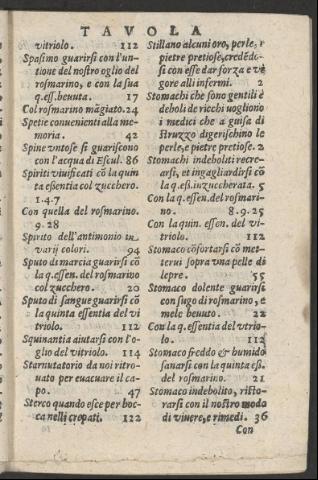 TAVOLA
vitriolo. 112
Spasimo guarirsi con l'un-
tione del nostro oglio del
rosmarino, e con la sua
q.ess. beuuta. 17
Col rosmarino mãgiato. 24
Spetie conuenienti alla me-
moria. 42
Spine vntose si guariscono
con l'acqua di Escul. 86
Spiriti viuificati cõ la quin
ta essentia col zucchero.
1.4.7
Con quella del rosmarino.
9.28
Spirito dell'antimonio in
varij colori. 94
Sputo di marcia guarirsi cõ
la q.essen. del rosmarino
col zucchero. 20
Sputo di sangue guarirsi cõ
la quinta essentia del vi
triolo. 112
Squinantia aiutarsi con l'o-
glio del vitriolo. 114
Starnutatorio da noi ritro-
uato per euacuare il ca-
po. 47
Sterco quando esce per boc-
ca nelli crepati. 122
Stillano alcuni oro, perle, e
pietre pretiose, credẽdo-
si con esse dar forza e vi
gore alli infermi. 2
Stomachi che sono gentili e
deboli de ricchi uogliono
i medici che a guisa di
struzzo digerischino le
perle, e pietre pretiose. 2
Stomachi indeboliti recre-
arsi, et ingagliardirsi cõ
la q.ess. inzuccherata. 5
Con la q.essen. del rosmari-
no. 8.9.25
Con la quin. essen. del vi-
triolo. 112
Stomaco cõfortarsi cõ met-
terui sopra vna pelle di
lepre. 55
Stomaco dolente guarirsi
con sugo di rosmarino, e
mele beuuto. 22
Con la q.essentia del vtrio-
lo. 112
Stomaco freddo & humido
sanarsi con la quinta ess.
del rosmarino. 21
Stomaco indebolito, risto-
rarsi con il nostro modo
di viuere, e rimedi. 36
Con